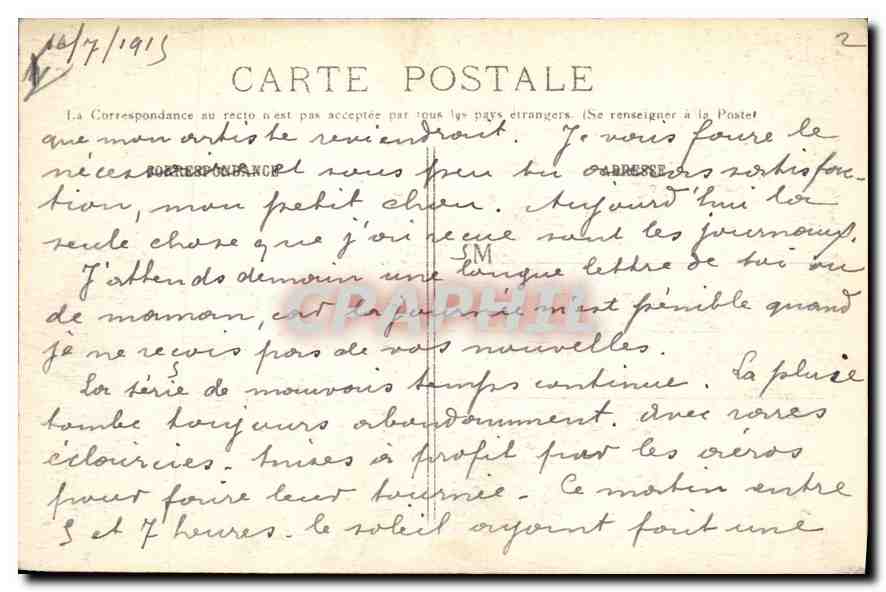 16/7/1915
2
CARTE POSTALE
La Correspondance au recto n'est pas acceptée par tous les pays étrangers. (Se renseigner à la Poste)
que mon artiste reviendrait. Je vais faire le
CORRESPONDANCE
ADRESSE
nécessaire et sous peu tu auras satisfac-
tion, mon petit chou. Aujourd'hui la
seule chose que j'ai reçue sont les journaux.
SM
J'attends demain une longue lettre de toi ou
CPAPHIL
de maman, car la journée m'est pénible quand
je ne reçois pas de vos nouvelles.
La série de mauvais temps continue. La pluie
tombe toujours abondamment. avec rares
éclaircies. mises à profit par les aéros
pour faire leur tournée. Ce matin entre
5 et 7 heures. le soleil ayant fait une